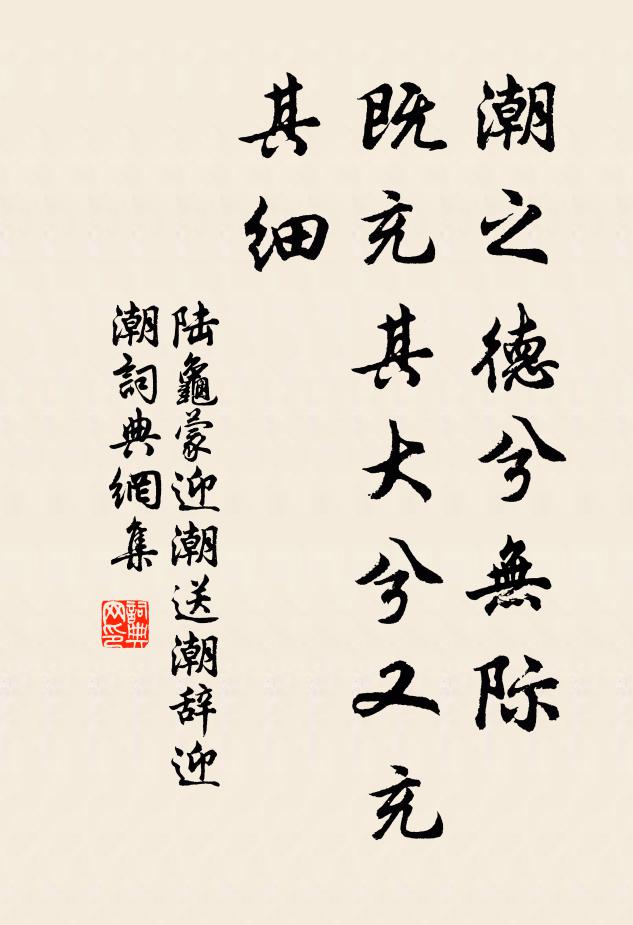 潮之德兮無际
既充其大兮又充
其细
陆龜蒙迎潮送潮辞迎
潮詞典網集
詞典网印